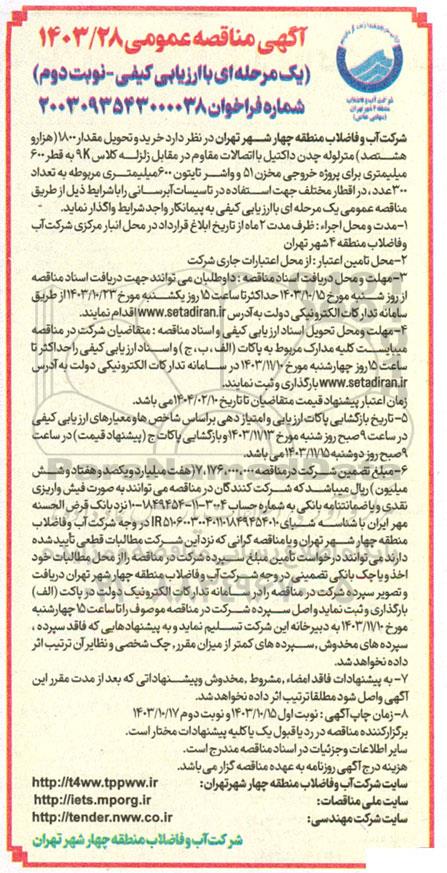 آگهی مناقصه عمومی ۱۴۰۳/۲۸
(یک مرحله ای با ارزیابی کیفی - نوبت دوم)
شماره فراخوان ۲۰۰۳۰۹۳۵۴۳۰۰۰۰۳۸
شرکت آب و فاضلاب
منطقه ۴ شهر تهران
(سهامی خاص)
شرکت آب و فاضلاب منطقه چهار شهر تهران در نظر دارد خرید و تحویل مقدار ۱۸۰۰ (هزار و
هشتصد) متر لوله چدن داکتیل با اتصالات مقاوم در مقابل زلزله کلاس K۹ به قطر ۶۰۰
میلیمتری برای پروژه خروجی مخزن ۵۱ و واشر تایتون ۶۰۰ میلیمتری مربوطه به تعداد
۳۰۰ عدد، در اقطار مختلف جهت استفاده در تاسیسات آبرسانی را با شرایط ذیل از طریق
مناقصه عمومی یک مرحله ای با ارزیابی کیفی به پیمانکار واجد شرایط واگذار نماید.
۱- مدت و محل اجراء : ظرف مدت ۲ ماه از تاریخ ابلاغ قرارداد در محل انبار مرکزی شرکت آب
وفاضلاب منطقه ۴ شهر تهران
۲- محل تامین اعتبار : از محل اعتبارات جاری شرکت
۳- مهلت و محل دریافت اسناد مناقصه : داوطلبان می توانند جهت دریافت اسناد مناقصه
از روز شنبه مورخ ۱۴۰۳/۱۰/۱۵ حداکثر تا ساعت ۱۵ روز یکشنبه مورخ ۱۴۰۳/۱۰/۲۳ از طریق
سامانه تدارکات الکترونیکی دولت به آدرس www.setadiran.ir اقدام نمایند.
۴- مهلت و محل تحویل اسناد ارزیابی کیفی و اسناد مناقصه : متقاضیان شرکت در مناقصه
میبایست کلیه مدارک مربوط به پاکات (الف ، ب ، ج ) و اسناد ارزیابی کیفی را حداکثر تا
ساعت ۱۵ روز چهارشنبه مورخ ۱۴۰۳/۱۱/۱۰ در سامانه تدارکات الکترونیکی دولت به آدرس
www.setadiran.ir بارگذاری و ثبت نمایند.
زمان اعتبار پیشنهاد قیمت متقاضیان تا تاریخ ۱۴۰۴/۰۲/۱۰ می باشد.
۵- تاریخ بازگشایی پاکات ارزیابی و امتیاز دهی براساس شاخص ها و معیارهای ارزیابی کیفی
در ساعت ۹ صبح روز شنبه مورخ ۱۴۰۳/۱۱/۱۳ و بازگشایی پاکات ج (پیشنهاد قیمت) در ساعت
۹ صبح روز دوشنبه ۱۴۰۳/۱۱/۱۵ می باشد.
۶- مبلغ تضمین شرکت در مناقصه ۷,۱۷۶,۰۰۰,۰۰۰ (هفت میلیارد و یکصد و هفتاد و شش
میلیون ) ریال میباشد که شرکت کنندگان در مناقصه می توانند به صورت فیش واریزی
نقدی و یا ضمانتنامه بانکی به شماره حساب ۳۰۰۴-۱۱-۱۸۴۹۴۵۴-۱۰ نزد بانک قرض الحسنه
مهر ایران با شناسه شبای IR ۵۱۰۶۰۰۳۰۰۴۰۱۱۰۱۸۴۹۴۵۴۰۱۰ در وجه شرکت آب و فاضلاب
منطقه چهار شهر تهران و یا مناقصه گرانی که نزد این شرکت مطالبات قطعی تأیید شده
دارند می توانند درخواست تأمین مبلغ سپرده شرکت در مناقصه را از محل مطالبات خود
اخذ و یا چک بانکی تضمینی در وجه شرکت آب و فاضلاب منطقه چهار شهر تهران دریافت
و تصویر سپرده شرکت در مناقصه را در سامانه تدارکات الکترونیک دولت در پاکت (الف)
بارگذاری و ثبت نماید و اصل سپرده شرکت در مناقصه موصوف را تا ساعت ۱۵ چهارشنبه
مورخ ۱۴۰۳/۱۱/۱۰ به دبیرخانه این شرکت تسلیم نماید و به پیشنهادهایی که فاقد سپرده ،
سپرده های مخدوش ، سپرده های کمتر از میزان مقرر، چک شخصی و نظایر آن ترتیب اثر
داده نخواهد شد.
۷- به پیشنهادات فاقد امضاء , مشروط , مخدوش و پیشنهاداتی که بعد از مدت مقرر این
آگهی واصل شود مطلقا ترتیب اثر داده نخواهد شد.
۸- زمان چاپ آگهی : نوبت اول ۱۴۰۳/۱۰/۱۵ و نوبت دوم ۱۴۰۳/۱۰/۱۷
برگزار کننده مناقصه در رد یا قبول یک یا کلیه پیشنهادات مختار است.
سایر اطلاعات و جزئیات در اسناد مناقصه مندرج است.
هزینه درج آگهی روزنامه به عهده مناقصه گزار می باشد.
سایت شرکت آب و فاضلاب منطقه چهار شهر تهران: http://t4ww.tppww.ir
سایت ملی مناقصات: http://iets.mporg.ir
سایت شرکت مهندسی: http://tender.nww.co.ir
شرکت آب و فاضلاب منطقه چهار شهر تهران